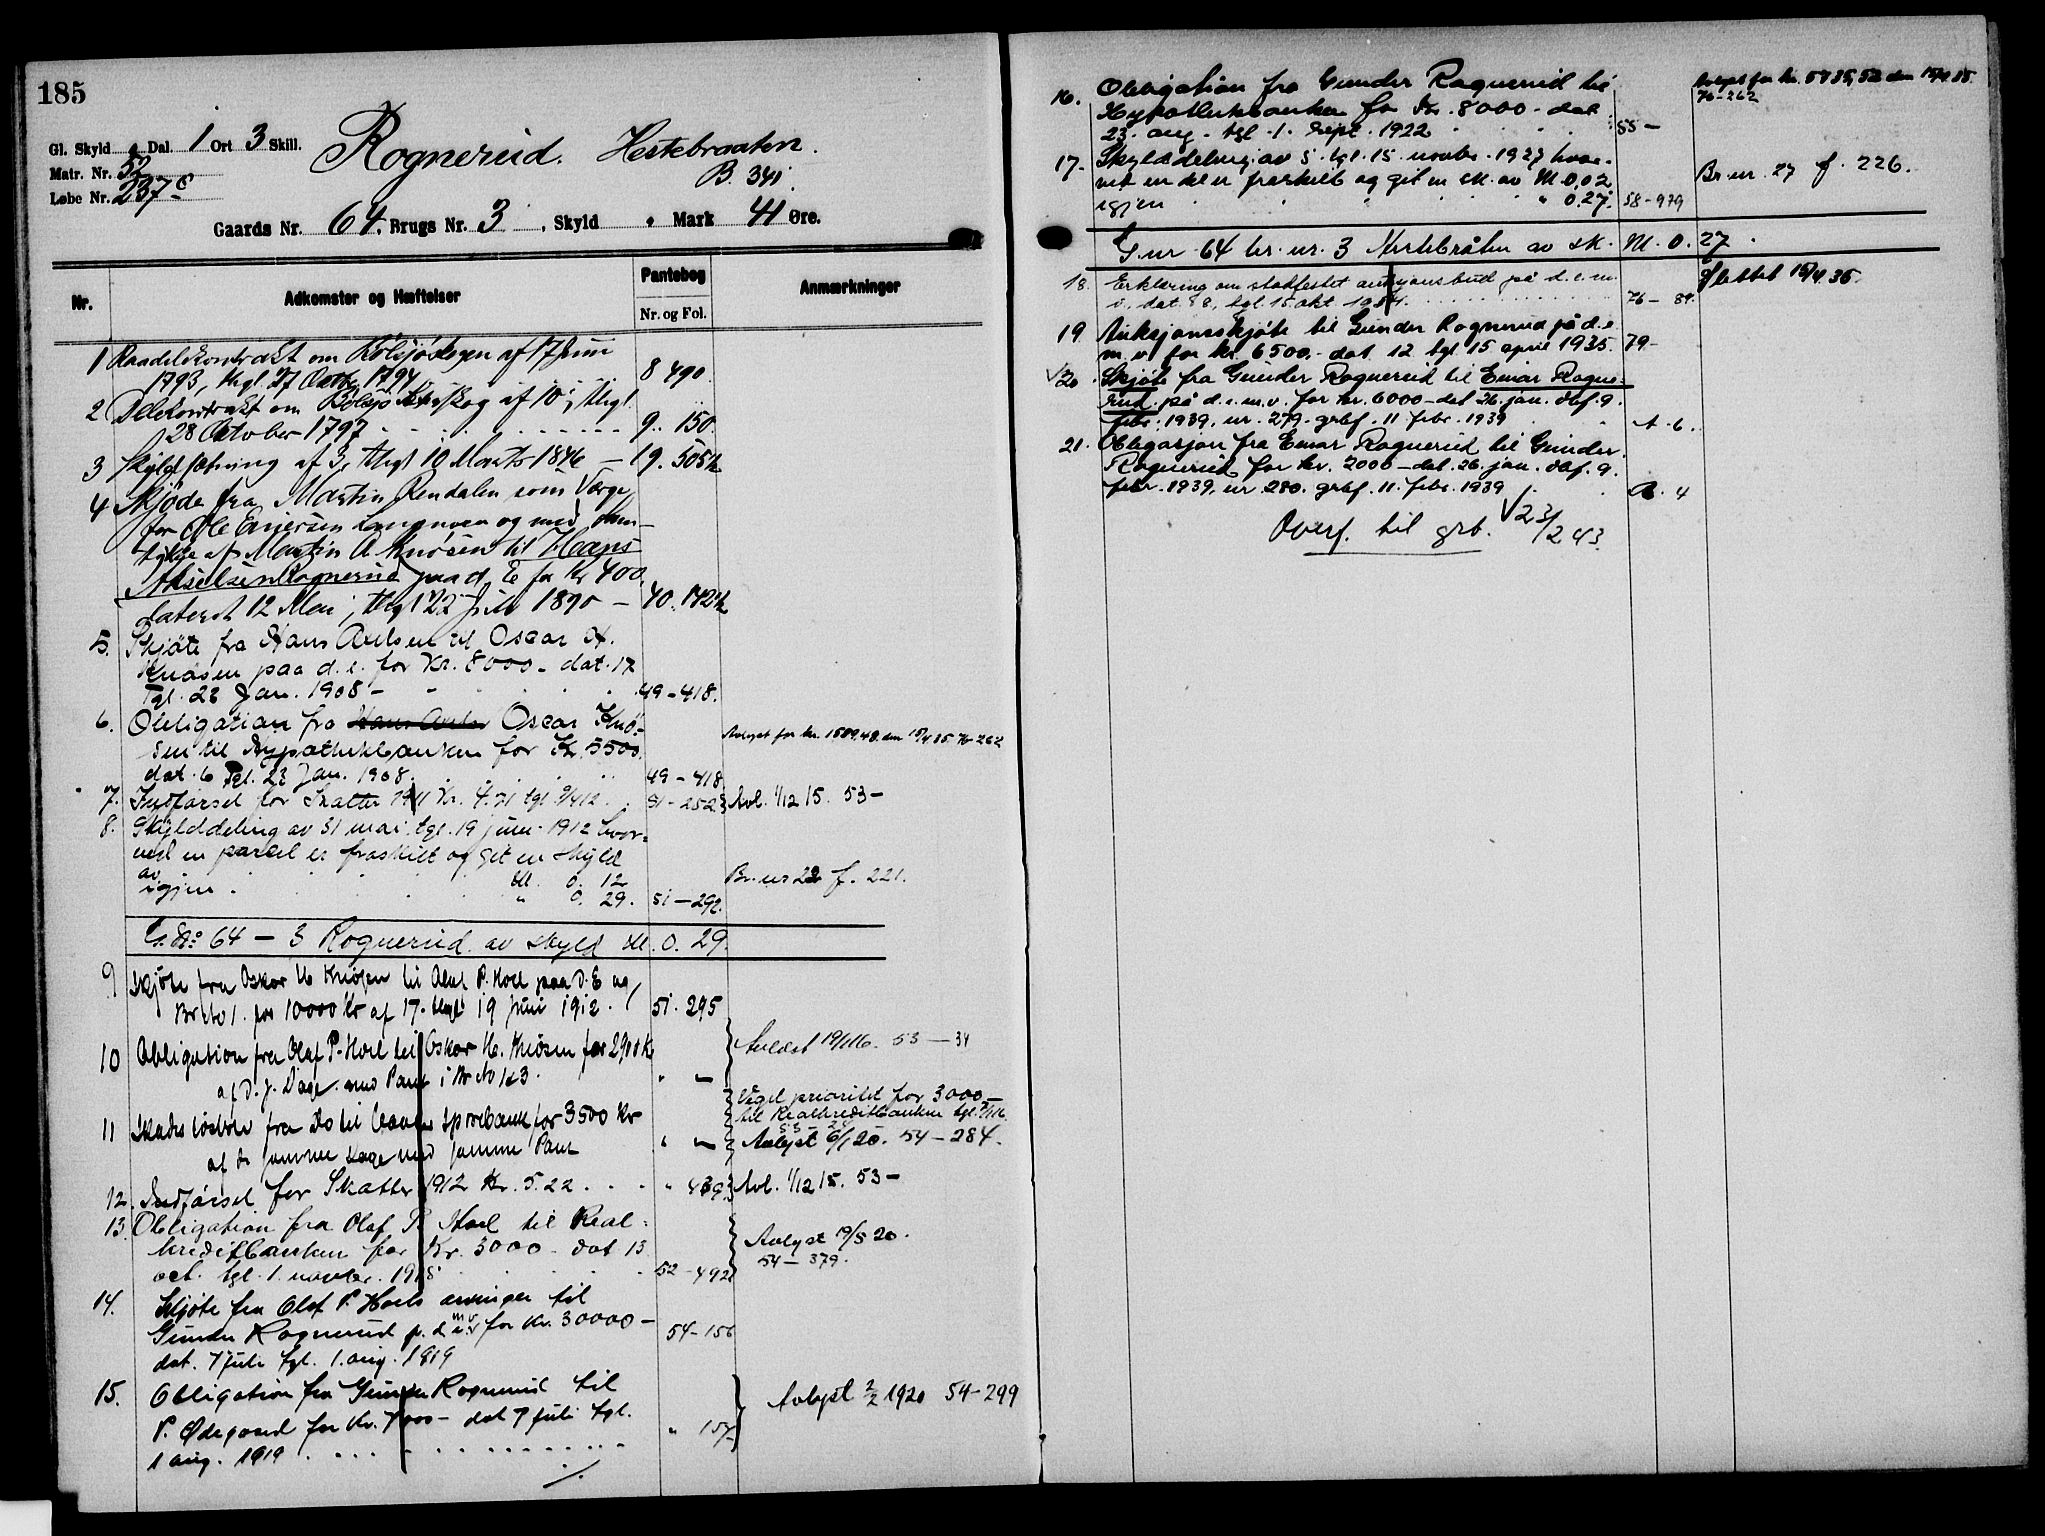 185
Gl. Skyld • Dal. 1 Ort 3 Skill.
Matr. Nr. 52
Løbe Nr. 237c
Rognerud. Hestebraaten.
B. 341.
Gaards Nr. 64, Brugs Nr. 3, Skyld • Mark 41 Øre.
Nr. Adkomster og Hæftelser Pantebog Nr. og Fol. Anmærkninger
1 Raadelekontrakt om Rölsjöskogen af 17 Juni
1793, thgl. 27 Octbr 1794 8 490.
2 Delekontrakt om Skog af 10, thgl.
28 October 1797 - - - 9. 150.
3 Skyldsætning af 3, thgl 10 Marts 1846 — 19. 505b
4 Skjøde fra Martin Rendalen som Værge
for Ole Engersen Langmoen og med Sam-
tykke af Martin A. Knøsen til Hans
Akselsen Rognerud paa d. E for Kr 400.
dateret 12 Mai, thgl 22 Juli 1890 — 40. 142b
5. Skjøte fra Hans Axelsen til Oscar H.
Knøsen paa d. e. for Kr. 8000 - dat. 17
Tgl. 23 Jan. 1908 - 49-418.
6. Obligation fra Hans Axels Oscar Knø-
sen til Hypothekbanken for Kr. 5500. Avlyst for kr. 1509,48. den 15/4 35. 76-262
dat. 6 Tgl. 23 Jan. 1908. 49-418
7. Indførsel for Skatter 1911 Kr. 4.71 tgl 9/4 12. 51-252 Avl. 1/12 15. 53-
8. Skylddeling av 31 mai, tgl. 19 juni 1912 hvor-
ved en parcel er fraskilt og git en skyld
av M. 0. 12 Br. nr 22 f. 221.
igjen " 0. 29. 51-292.
G. No 64 - 3 Rognerud av skyld M. 0. 29.
9 Skjøte fra Oskar H Knøsen til Oluf P. Hoel paa D. E og
Br No 1. for 10000 Kr af 17. thgl 19 Juni 1912. 51. 295
10 Obligation fra Olaf P. Hoel til Oskar H. Knøsen for 2900 Kr Avlæst 19/1 16. 53 — 34
af D. J. Dage med Pant i Br No 1&3. " —
11 Skadesløsbrev fra Do til Vaaler Sparebank for 3500 Kr Viget prioritet for 3000—
til Realkreditbanken tgl.
53 - 24
af do samme Dage med samme Pant " — Avlyst 6/1 20. 54-284.
12. Indførsel for Skatter 1912 Kr. 5.22 . . . " 439 Avl. 1/12 15. 53-
13. Obligation fra Olaf P. Hoel til Real-
kreditbanken for Kr. 3000 - dat 13 Avlyst 19/5 20.
oct. tgl. 1. novbr. 1915 52-492 54-379.
14. Skjøte fra Olaf P. Hoels arvinger til
Gunder Rognerud p. d. e. m. v. for Kr. 30000 - 54-156
dat. 7 juli tgl. 1. aug. 1919
15. Obligation fra Gunder Rognerud til
P. Ødegaard for Kr. 7000 - dat 7 juli tgl. Avlyst 2/2 1920 54-299
1 aug. 1919 . . . . " 157
16. Obligation fra Gunder Rognerud til Avlyst for kr. 5785,52 den 15/4 35.
Hypothekbanken for Kr. 8000 - dat 76-262
23. aug. tgl. 1. sept. 1922 55 -
17. Skylddeling av 5. tgl. 15. novbr. 1927 hvor-
ved en del er fraskilt og git en sk. av M. 0,02 Br. nr. 27 f. 226.
igjen " 0.27. 58-979
G.nr 64 br. nr. 3 Hestebråten av sk. M. 0. 27.
18. Erklæring om stadfestet auksjonsbud på d. e. m. Slettet 15/4 35.
v. dat. 8, tgl. 15. okt. 1934. 76-89.
19 Auksjonsskjøte til Gunder Rognerud på d. e
m. v. for kr. 6500.- dat. 12 tgl 15 april 1935. 79-
√ 20. Skjøte fra Gunder Rognerud til Einar Rogne-
rud på d. e. m. v. for kr. 6000 - dat 26. jan. dbf. 9.
febr. 1939, nr. 279. grbf. 11 febr. 1939 A. 6.
21. Obligasjon fra Einar Rognerud til Gunder
Rognerud for kr. 2000 - dat. 26. jan. dbf. 9.
febr. 1939, nr 280. grbf. 11. febr. 1939 B. 4
Overf. til grb. √ 23/2 43.